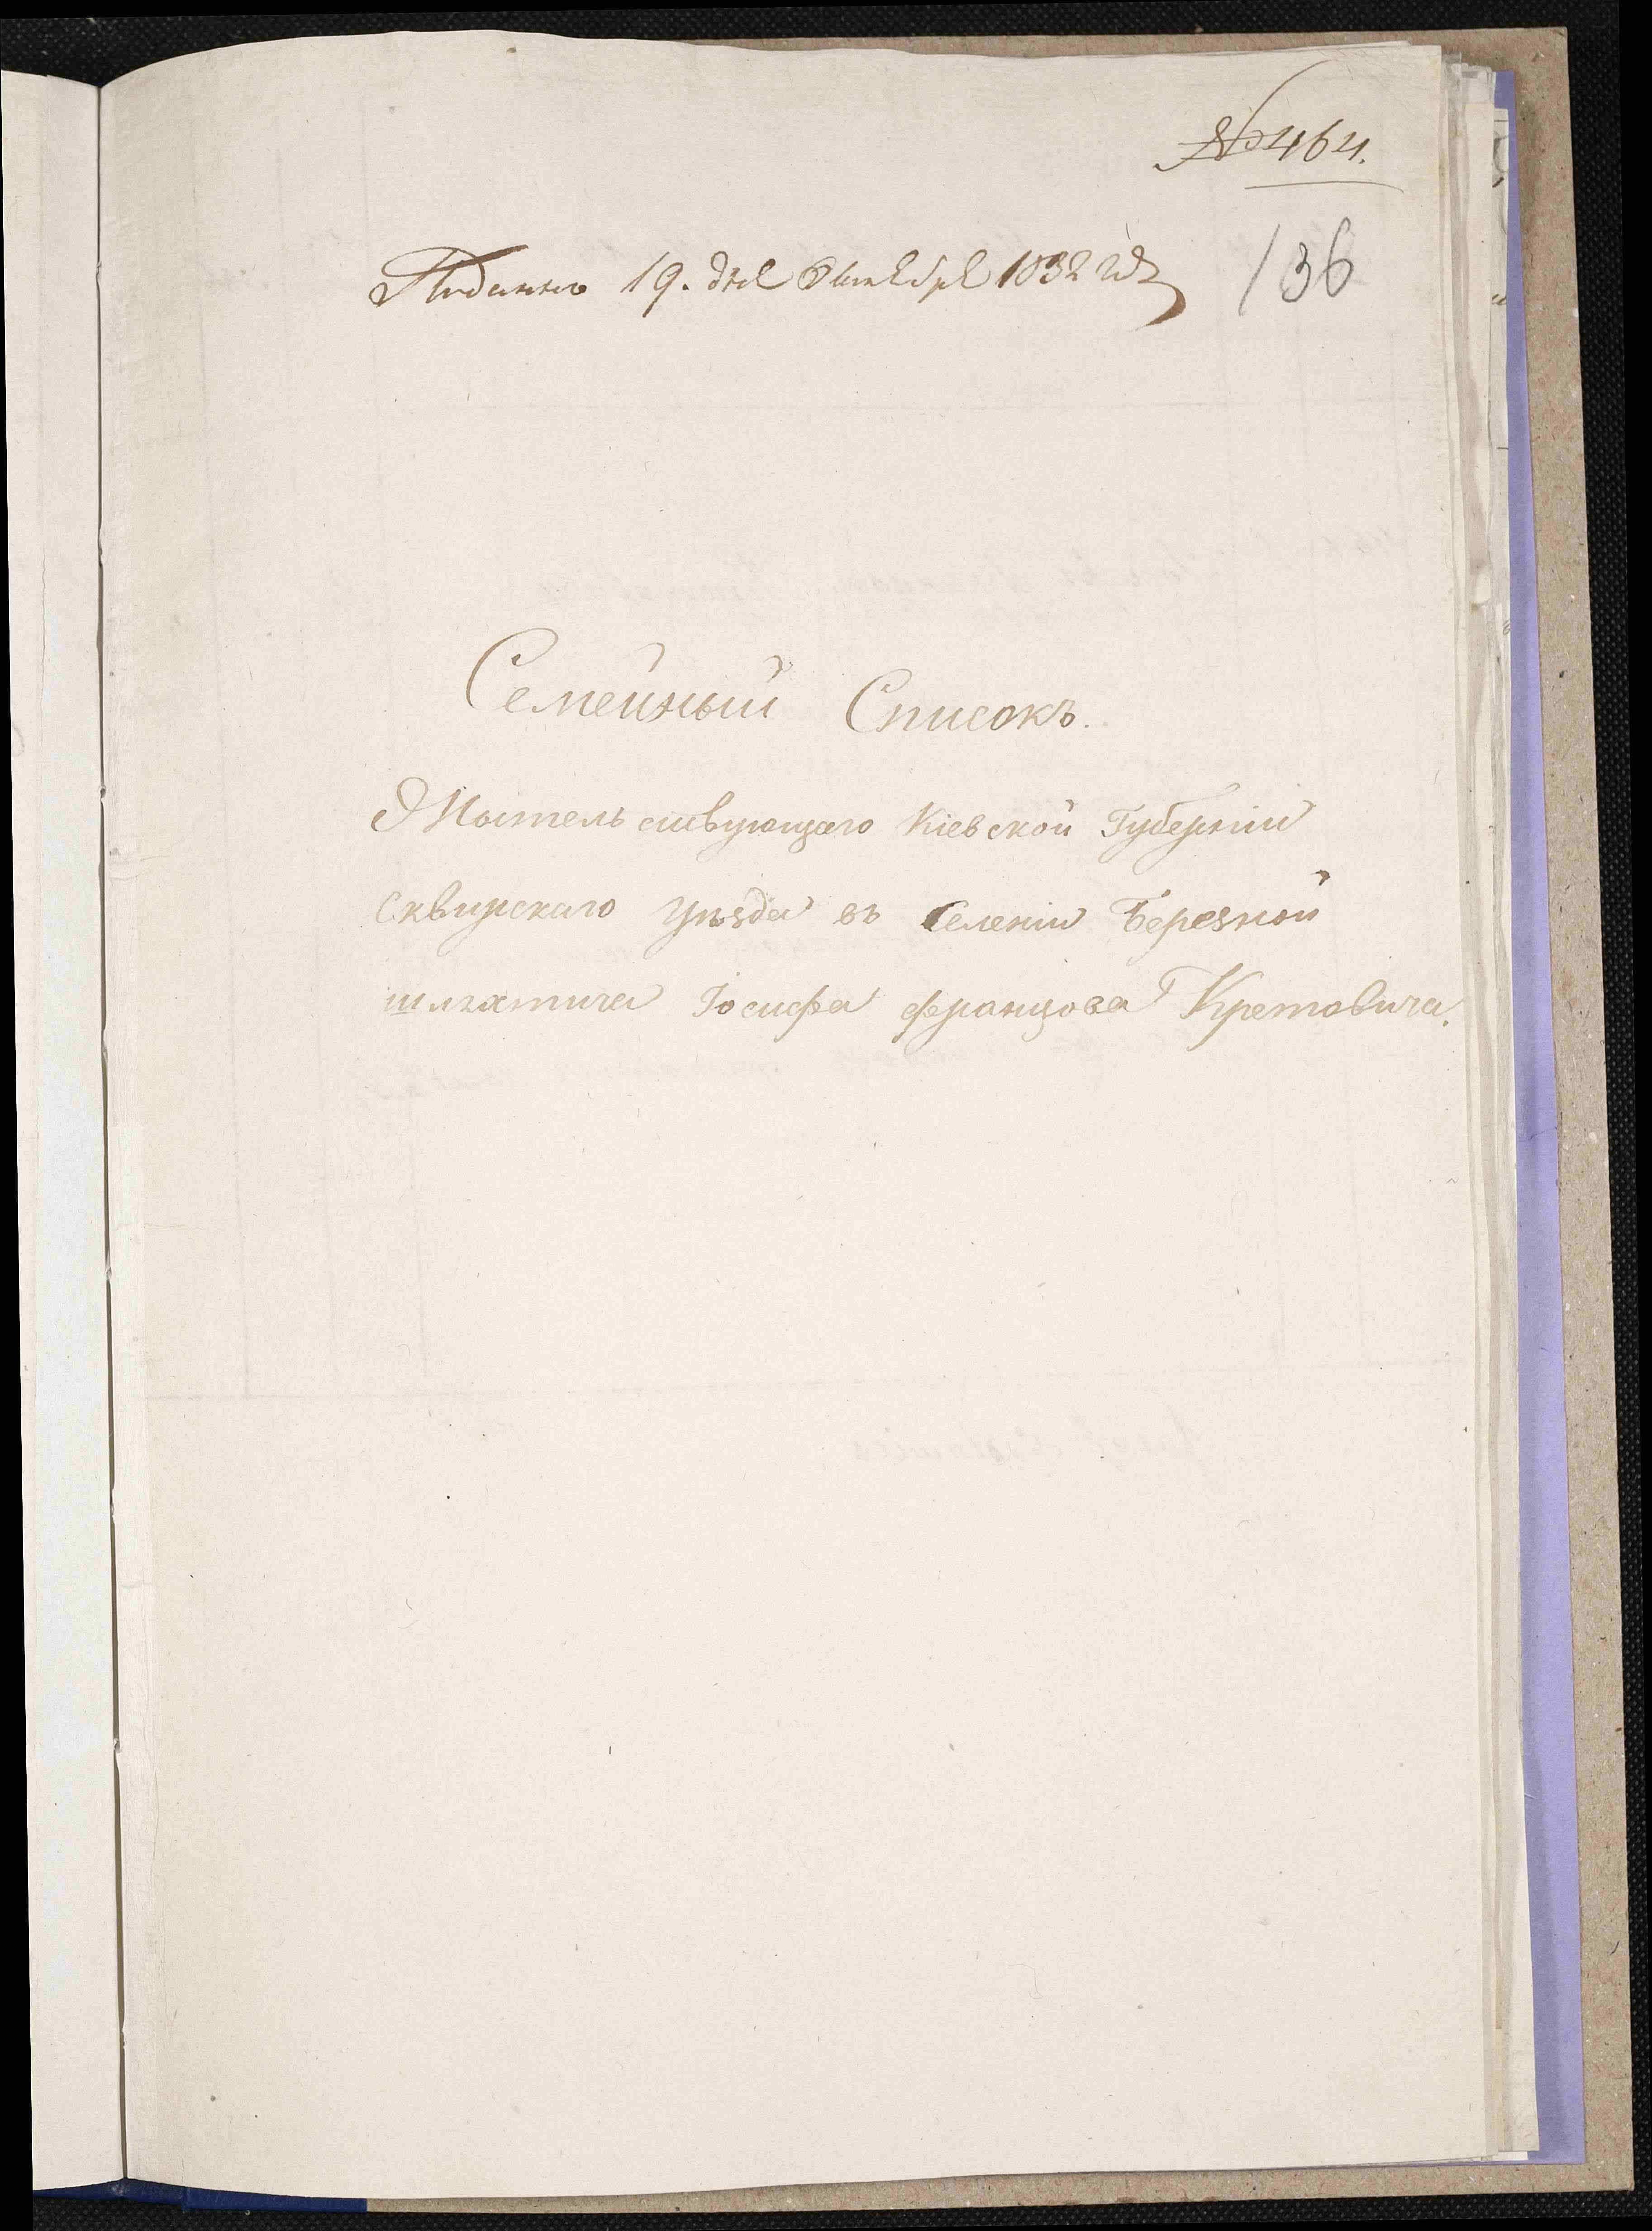 № 464.
136
Поданъ 19. дня Октября 1832 года
Семейный Списокъ.
Жытельствующаго Кіевской Губерніи
Сквирскаго Уѣзда въ Селеніи Березной
шляхтича Іосифа францова Кретовича.